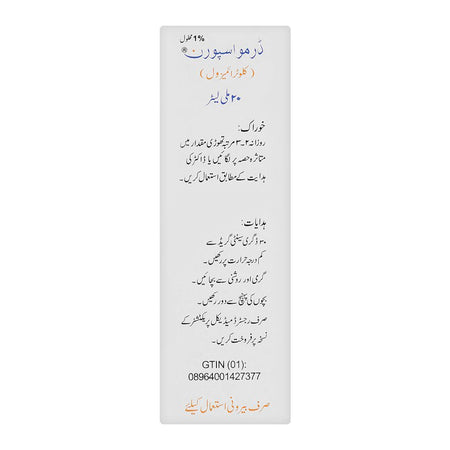 ڈرمواسپورن® 1% محلول
(کلوٹرائمیزول)
۲۰ ملی لیٹر
خوراک:
روزانہ ۲-۳ مرتبہ تھوڑی مقدار میں
متاثرہ حصہ پر لگائیں یا ڈاکٹر کی
ہدایت کے مطابق استعمال کریں۔
ہدایات:
۳۰ ڈگری سینٹی گریڈ سے
کم درجہ حرارت پر رکھیں۔
گرمی اور روشنی سے بچائیں۔
بچوں کی پہنچ سے دور رکھیں۔
صرف رجسٹرڈ میڈیکل پریکٹشنر کے
نسخہ پر فروخت کریں۔
GTIN (01):
08964001427377
صرف بیرونی استعمال کیلئے